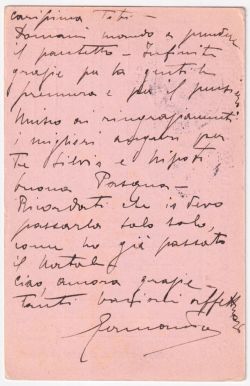 Carissima Titi -
Domani mando a prendere
il pacchetto - Infinite
grazie per la gentile
premura e per il pensiero
Unisco ai ringraziamenti
i migliori auguri per
Te Silvio e Nipoti
buona Pasqua -
Ricordati che io devo
passarla solo solo,
come ho già passato
il Natale
Ciao, ancora grazie -
tanti bacioni affettuosi